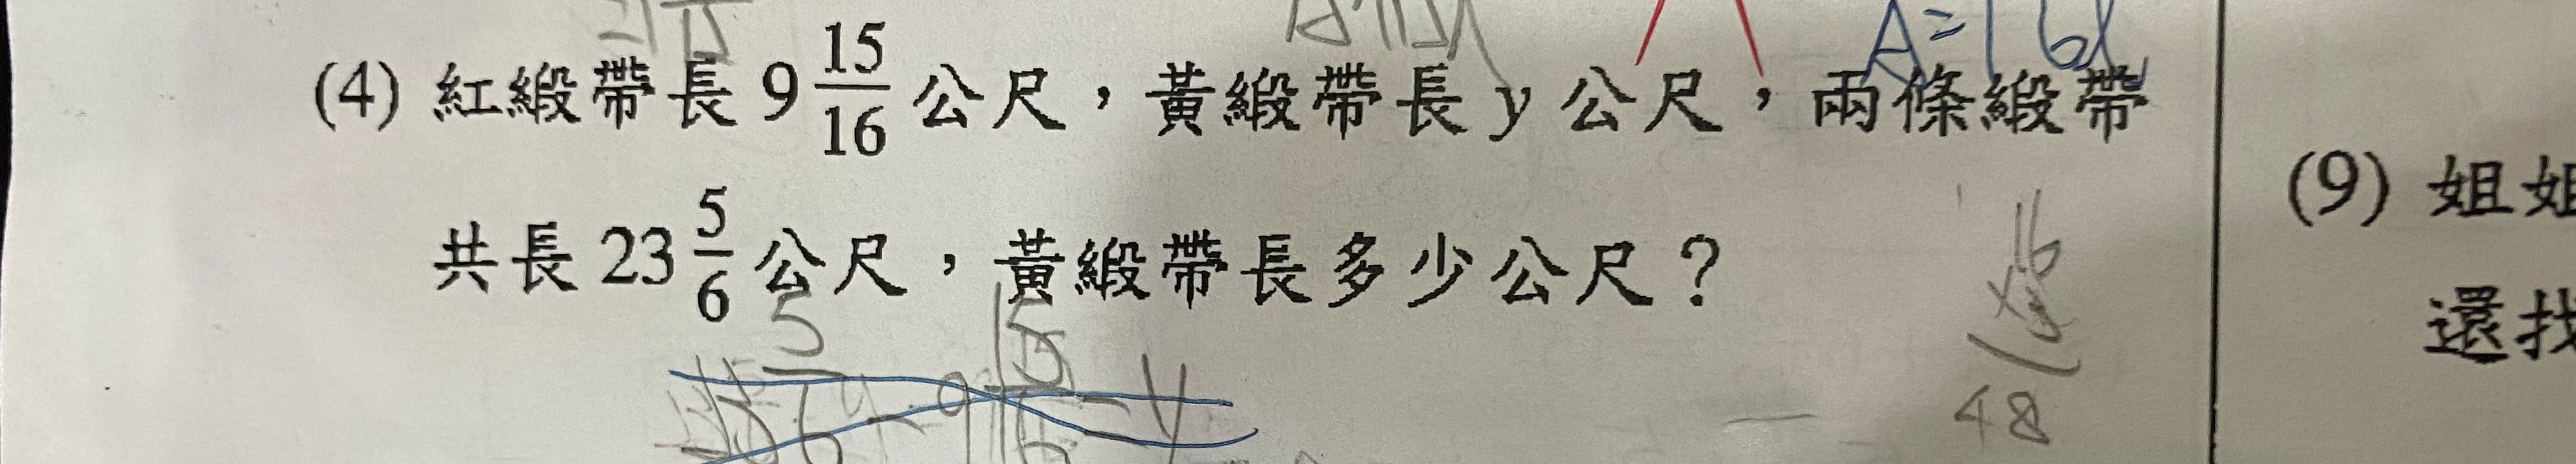 A=16
(4) 紅緞帶長 9 15/16 公尺，黃緞帶長 y 公尺，兩條緞帶
共長 23 5/6 公尺，黃緞帶長多少公尺？
(9) 姐姐
還找
16
48